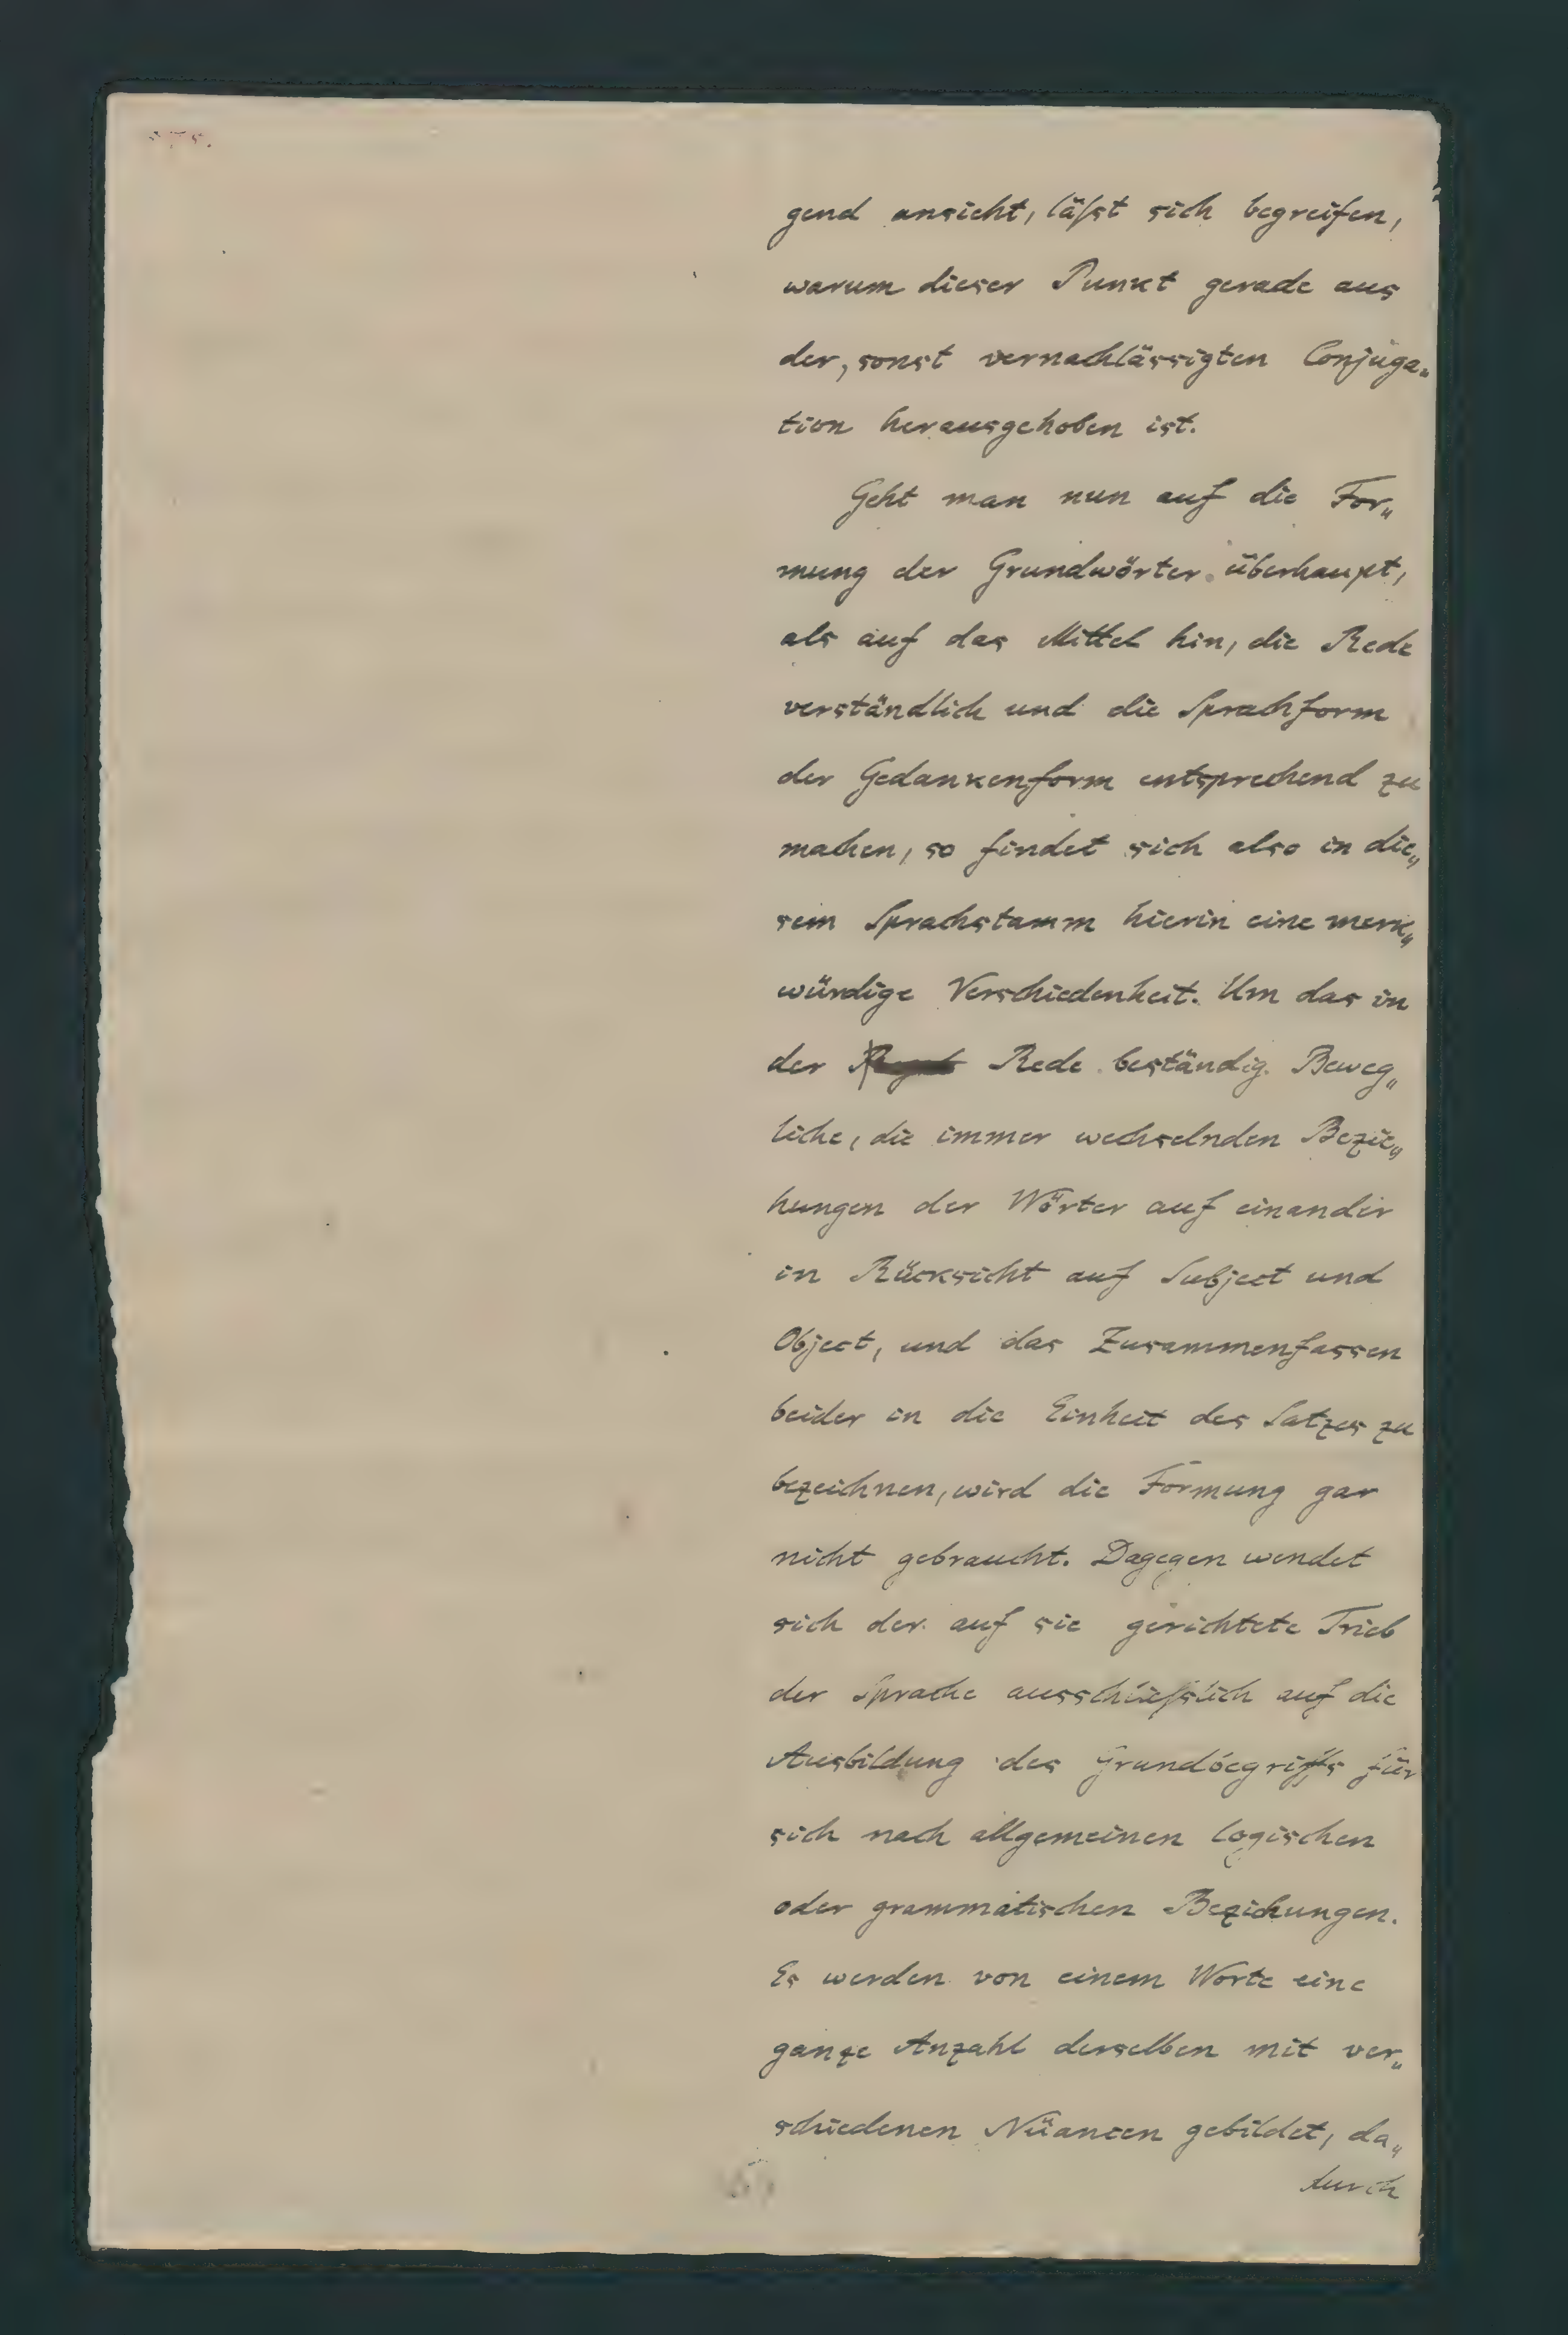 gend ansieht, läfst sich begreifen,
warum dieser Punkt gerade aus
der, sonst vernachlässigten Conjuga„
tion herausgehoben ist.
Geht man nun auf die For„
mung der Grundwörter überhaupt,
als auf das Mittel hin, die Rede
verständlich und die Sprachform
der Gedankenform entsprechend zu
machen, so findet sich also in die„
sem Sprachstamm hierin eine merk„
würdige Verschiedenheit. Um das in
der Rede beständig Beweg„
liche, die immer wechselnden Bezie„
hungen der Wörter auf einander
in Rücksicht auf Subject und
Object, und das Zusammenfassen
beider in die Einheit des Satzes zu
bezeichnen, wird die Formung gar
nicht gebraucht. Dagegen wendet
sich der auf sie gerichtete Trieb
der Sprache ausschliefslich auf die
Ausbildung des Grundbegriffs für
sich nach allgemeinen logischen
oder grammatischen Beziehungen.
Es werden von einem Worte eine
ganze Anzahl derselben mit ver„
schiedenen Nüancen gebildet, da„
durch